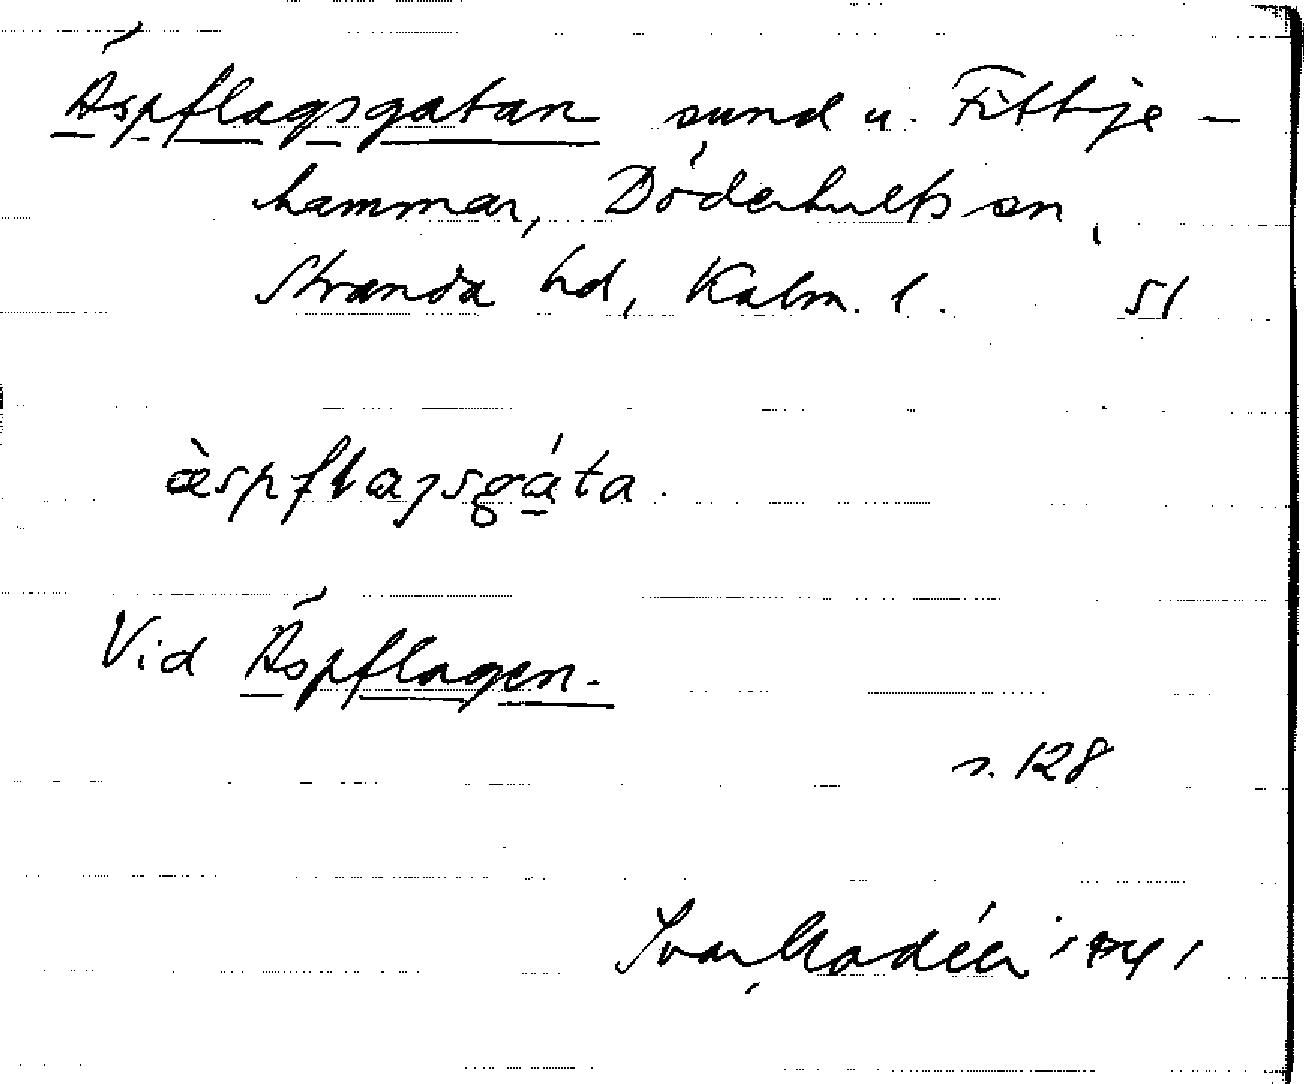 Äspflagsgatan sund u. Fittje-
hammar, Döderhults sn,
Stranda hd, Kalm. l. 51
àspflaʒsgáta.
Vid Äspflagen.
s. 128
Ivar Modéer 1941